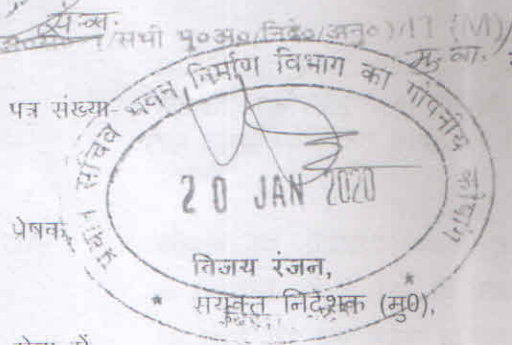 /सभी मु०अ०/निदे०/अनु०)/17 (M)/
पत्र संख्या-
सचिव भवन निर्माण विभाग का गोपनीय कोषांग
20 JAN 2020
प्रेषक,
विजय रंजन,
संयुक्त निदेशक (मु0),
सेवा में